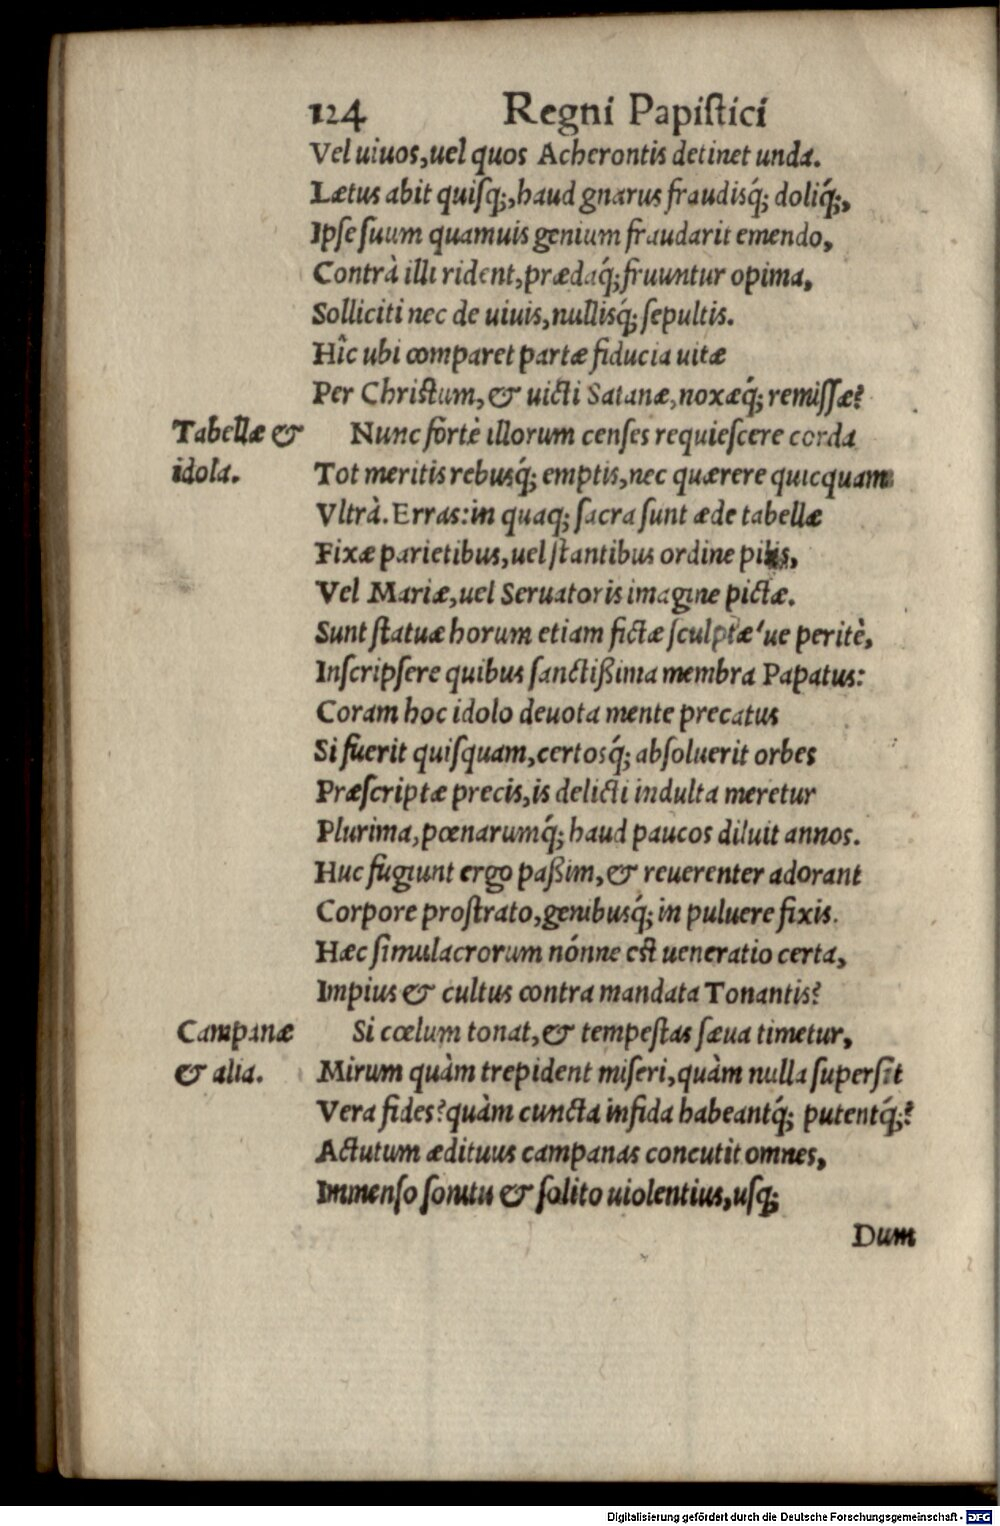 124 Regni Papistici
Vel uiuos, uel quos Acherontis detinet unda.
Lætus abit quisq;, haud gnarus fraudisq́; doliq́;,
Ipse suum quamuis genium fraudarit emendo,
Contrà illi rident, prædaq́; fruuntur opima,
Solliciti nec de uiuis, nullisq́; sepultis.
Hîc ubi comparet partæ fiducia uitæ
Per Christum, & uicti Satanæ, noxæq́; remissæ?
Tabellæ & Nunc fortè illorum censes requiescere corda
idola. Tot meritis rebusq́; emptis, nec quærere quicquam
Vltrà. Erras: in quaq; sacra sunt æde tabellæ
Fixæ parietibus, uel stantibus ordine pilis,
Vel Mariæ, uel Seruatoris imagine pictæ.
Sunt statuæ horum etiam fictæ sculptæ'ue peritè,
Inscripsere quibus sanctißima membra Papatus:
Coram hoc idolo deuota mente precatus
Si fuerit quisquam, certosq́; absoluerit orbes
Præscriptæ precis, is delicti indulta meretur
Plurima, pœnarumq́; haud paucos diluit annos.
Huc fugiunt ergo paßim, & reuerenter adorant
Corpore prostrato, genibusq́; in puluere fixis.
Hæc simulacrorum nónne est ueneratio certa,
Impius & cultus contra mandata Tonantis?
Campanæ Si cœlum tonat, & tempestas sæua timetur,
& alia. Mirum quàm trepident miseri, quàm nulla supersit
Vera fides? quàm cuncta infida habeantq́; putentq́;?
Actutum ædituus campanas concutit omnes,
Immenso sonitu & solito uiolentius, usq;
Dum
Digitalisierung gefördert durch die Deutsche Forschungsgemeinschaft - DFG